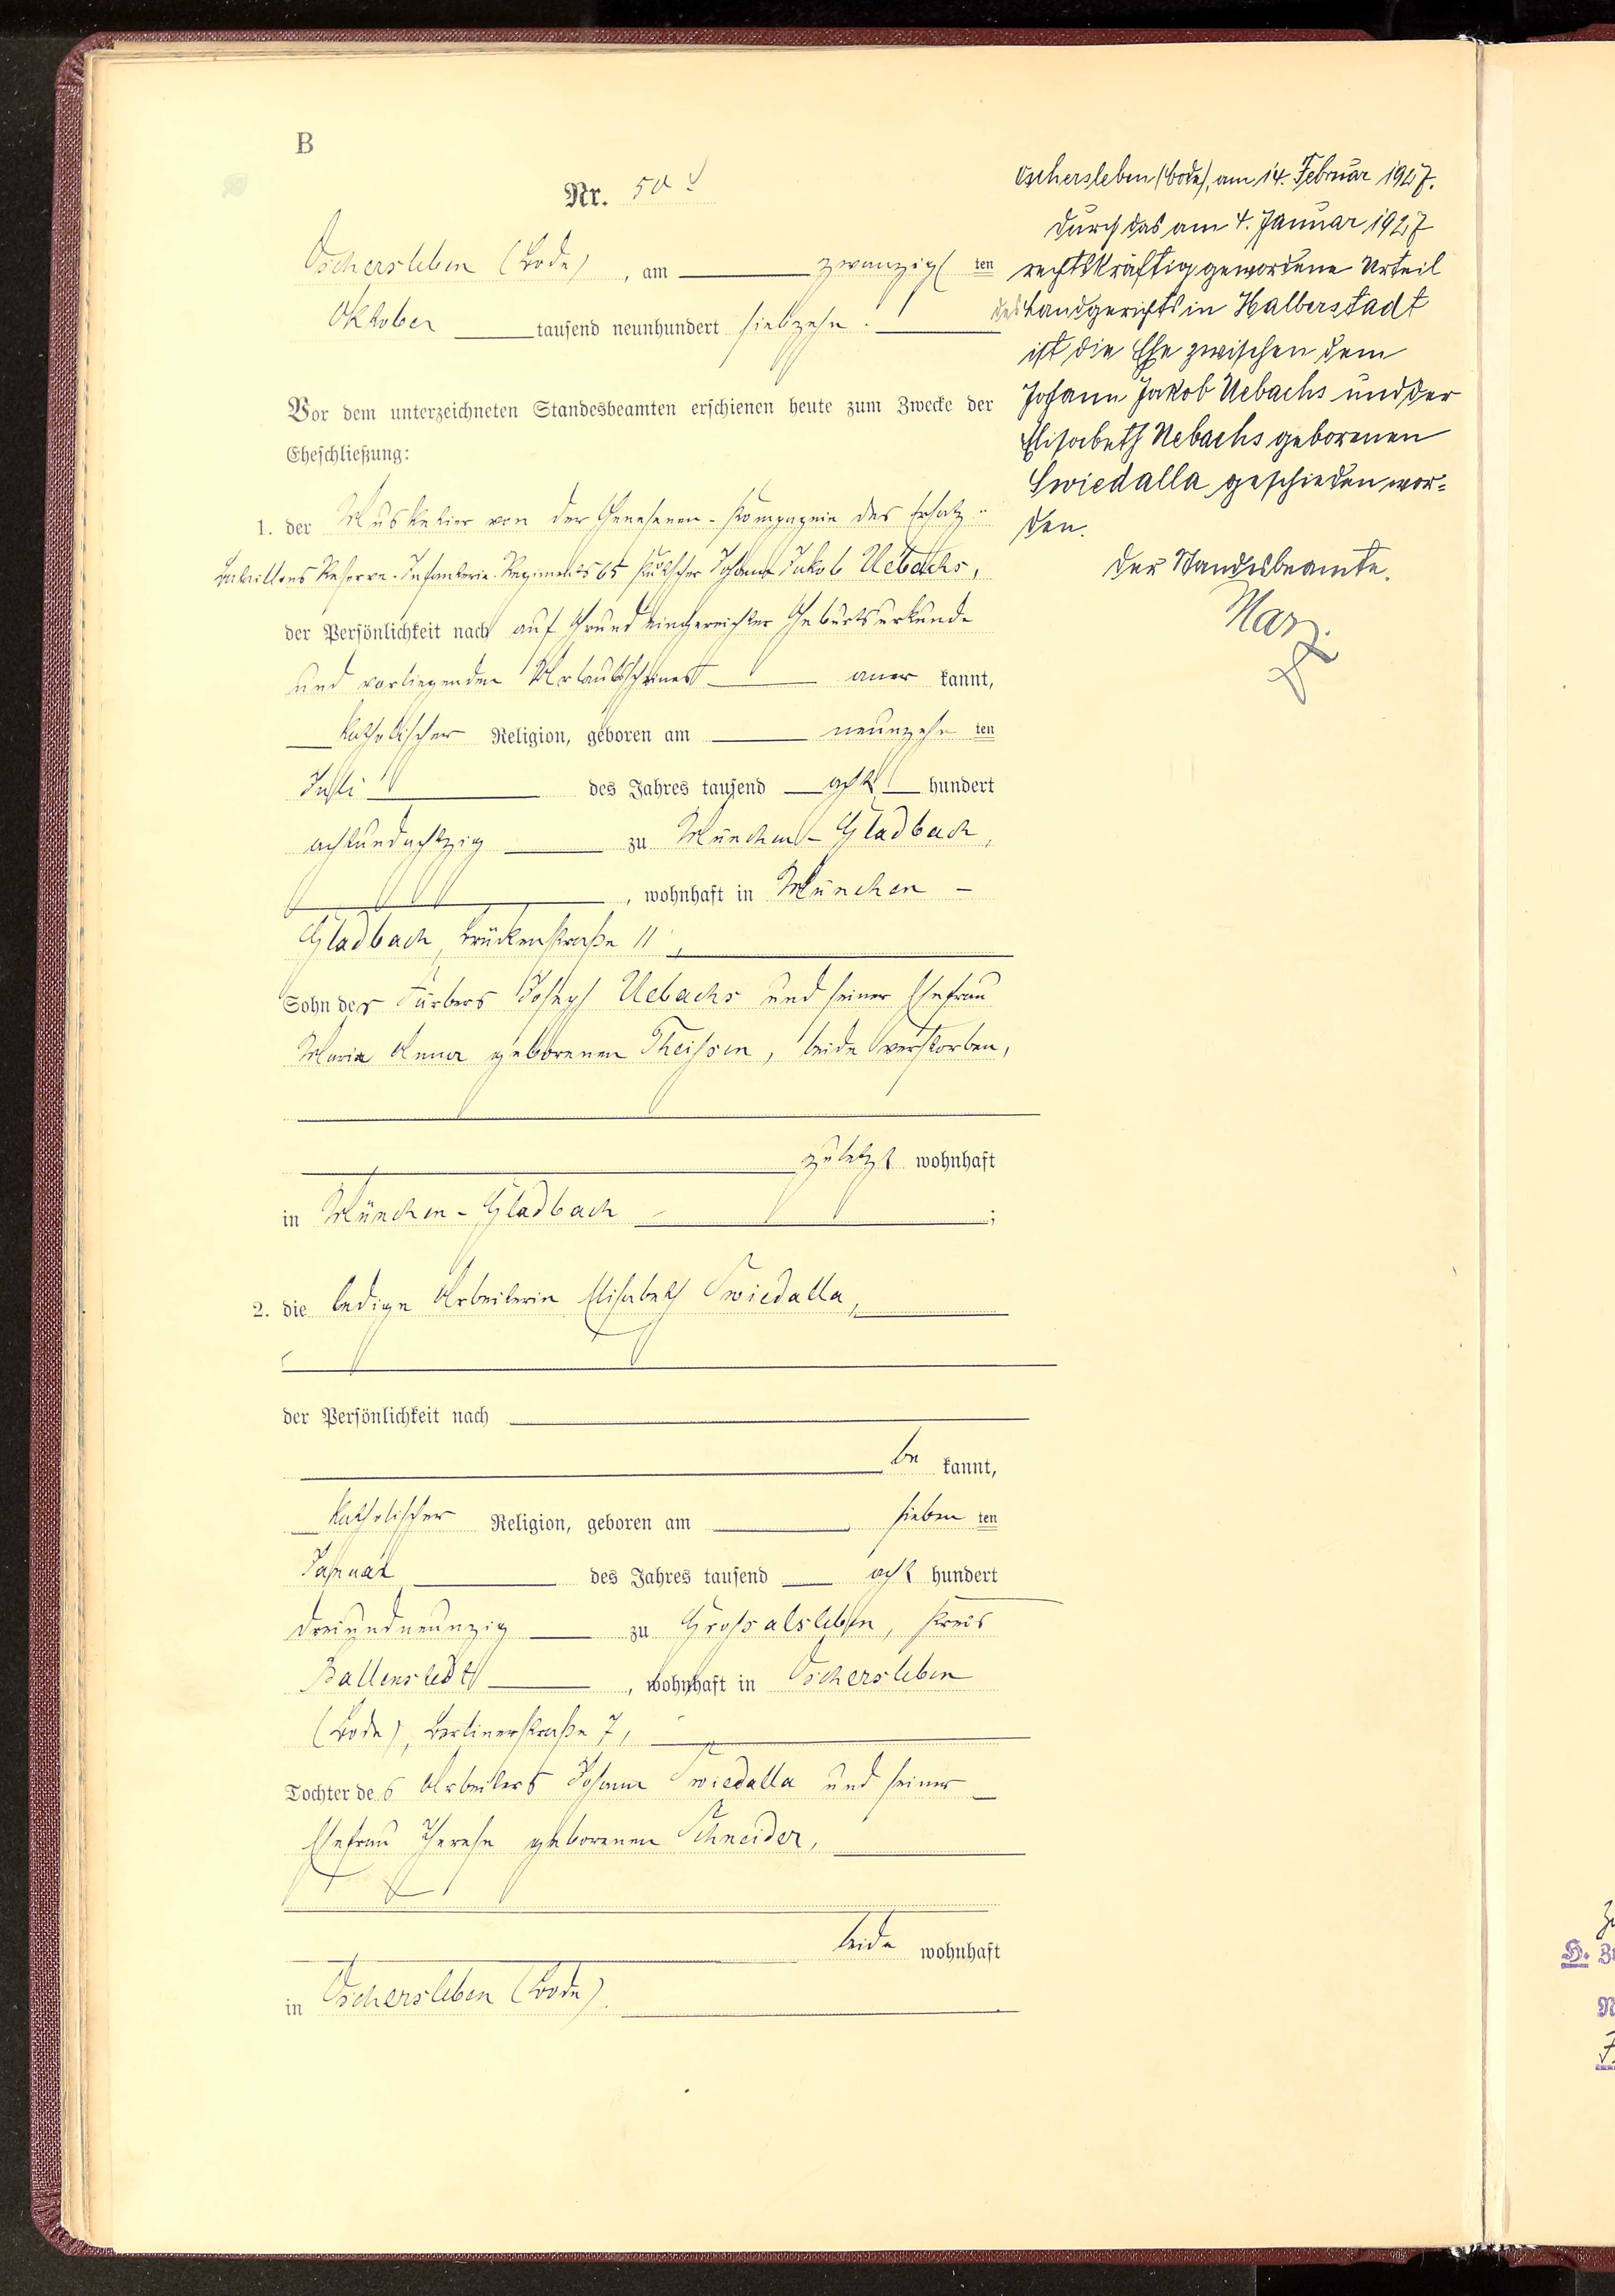 B
Nr. 50
Oschersleben (Bode), am zwanzigsten
Oktober tausend neunhundert siebzehn.
Vor dem unterzeichneten Standesbeamten erschienen heute zum Zwecke der
Eheschließung:
1. der Musketier von der Genesenen-Kompagnie des Ersatz-
Bataillons Reserve-Infanterie-Regiments 65 Johann Jakob Uebachs,
der Persönlichkeit nach auf Grund eingereichter Geburtsurkunde
und vorliegenden Urlaubscheines anerkannt,
katholischer Religion, geboren am neunzehnten
Juli des Jahres tausend acht hundert
achtundachtzig zu München-Gladbach,
, wohnhaft in München-
Gladbach, Brückenstraße 11,
Sohn des Färbers Joseph Uebachs und seiner Ehefrau
Maria Anna geborenen Theissen, beide verstorben,
zuletzt wohnhaft
in München-Gladbach ;
2. die ledige Arbeiterin Elisabeth Swiedalla,
der Persönlichkeit nach
bekannt,
katholischer Religion, geboren am siebenten
Januar des Jahres tausend acht hundert
dreiundneunzig zu Grossalsleben, Kreis
Ballenstedt, wohnhaft in Oschersleben
(Bode), Berlinerstraße 7,
Tochter des Arbeiters Johann Swiedalla und seiner
Ehefrau Therese geborenen Schneider,
beide wohnhaft
in Oschersleben (Bode).
Oschersleben (Bode), am 14. Februar 1927.
Durch das am 4. Januar 1927
rechtskräftig gewordene Urteil
des Landgerichts in Halberstadt
ist die Ehe zwischen dem
Johann Jakob Uebachs und der
Elisabeth Uebachs geborenen
Swiedalla geschieden wor=
den.
Der Standesbeamte.